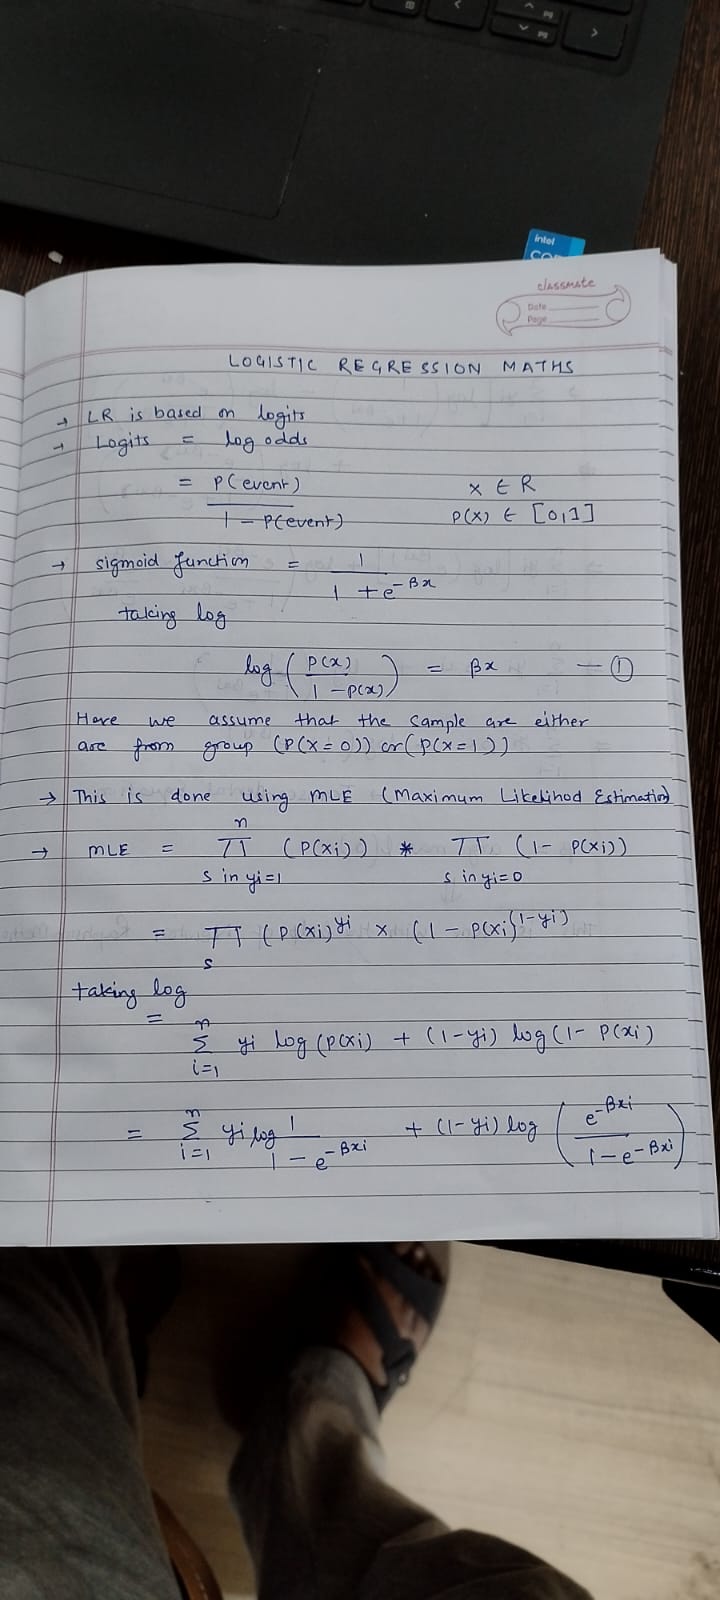 intel
CO
classmate
Date
Page
LOGISTIC REGRESSION MATHS
→ LR is based on logits
→ Logits = log odds
= P(event) / 1 - P(event)    x ∈ R
P(x) ∈ [0,1]
→ sigmoid function = 1 / 1 + e^-βx
taking log
log ( P(x) / 1 - P(x) ) = βx — ①
Here we assume that the sample are either
are from group (P(x=0)) or (P(x=1))
→ This is done using MLE (Maximum Likelihod Estimation)
→ MLE = n π s in yi=1 (P(xi)) * π s in yi=0 (1 - P(xi))
= π s (P(xi)^yi × (1 - P(xi)^(1-yi)
taking log
= n Σ i=1 yi log (P(xi) + (1-yi) log (1- P(xi)
= n Σ i=1 yi log 1 / 1 - e^-βxi + (1-yi) log ( e^-βxi / 1 - e^-βxi )